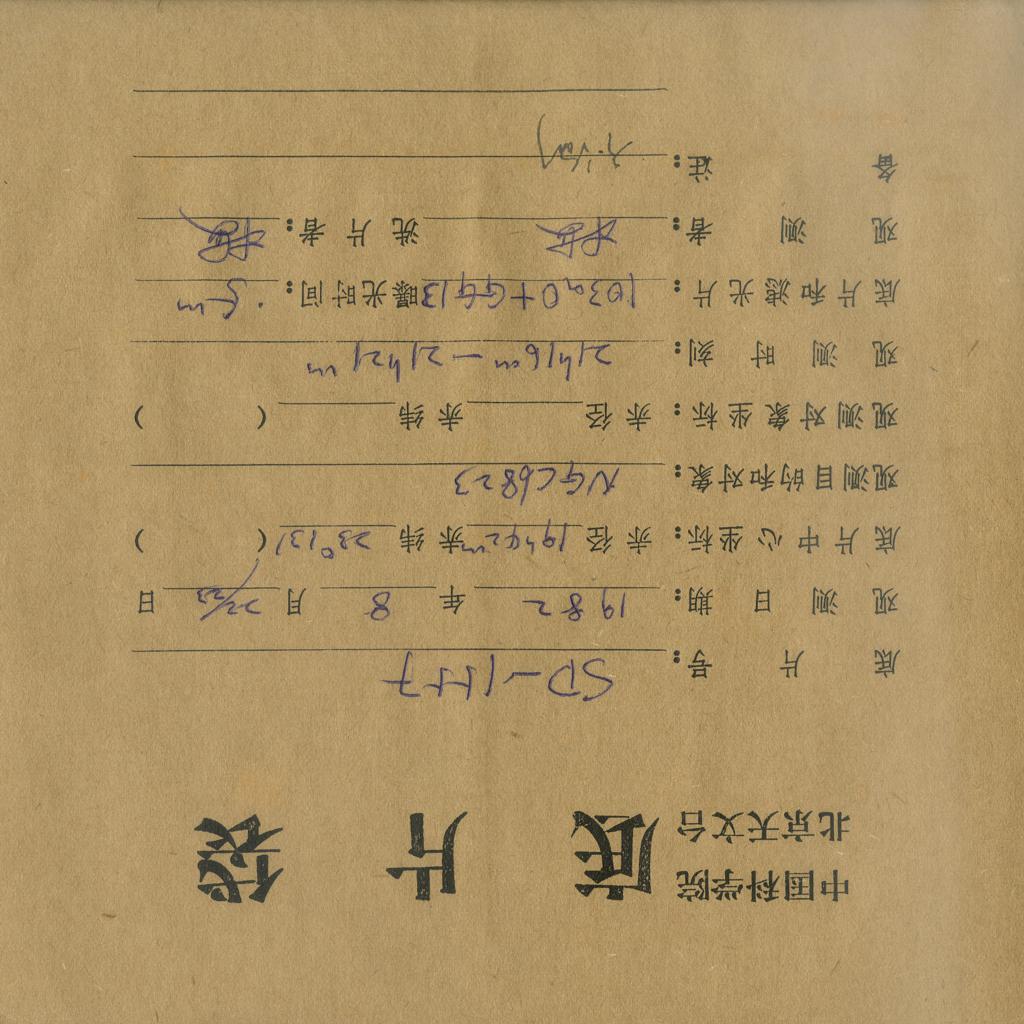 中国科学院
北京天文台
底 片 袋
底 片 号: SD-1557
观 测 日 期: 1982 年 8 月 22/23 日
底片中心坐标: 赤径 19h42m 赤纬 23°13' ( )
观测目的和对象: NGC6823
观测对象坐标: 赤径 赤纬 ( )
观 测 时 刻: 21h16m — 21h21m
底片和滤光片: 103aO+GG13 曝光时间: 5m
观 测 者: 洗片者:
备 注: